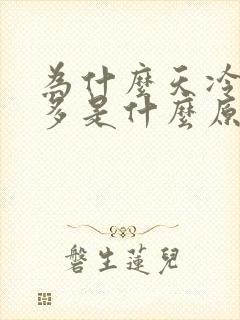 為什麼天冷
多是什麼原
磐生蓮兒